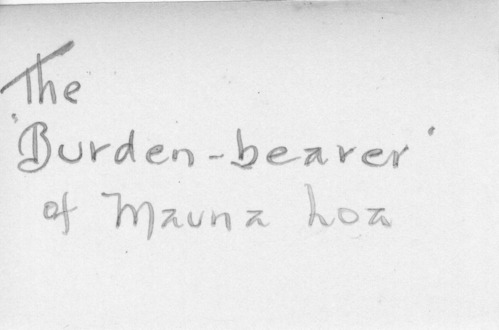 The
'Burden-bearer'
of Mauna Loa